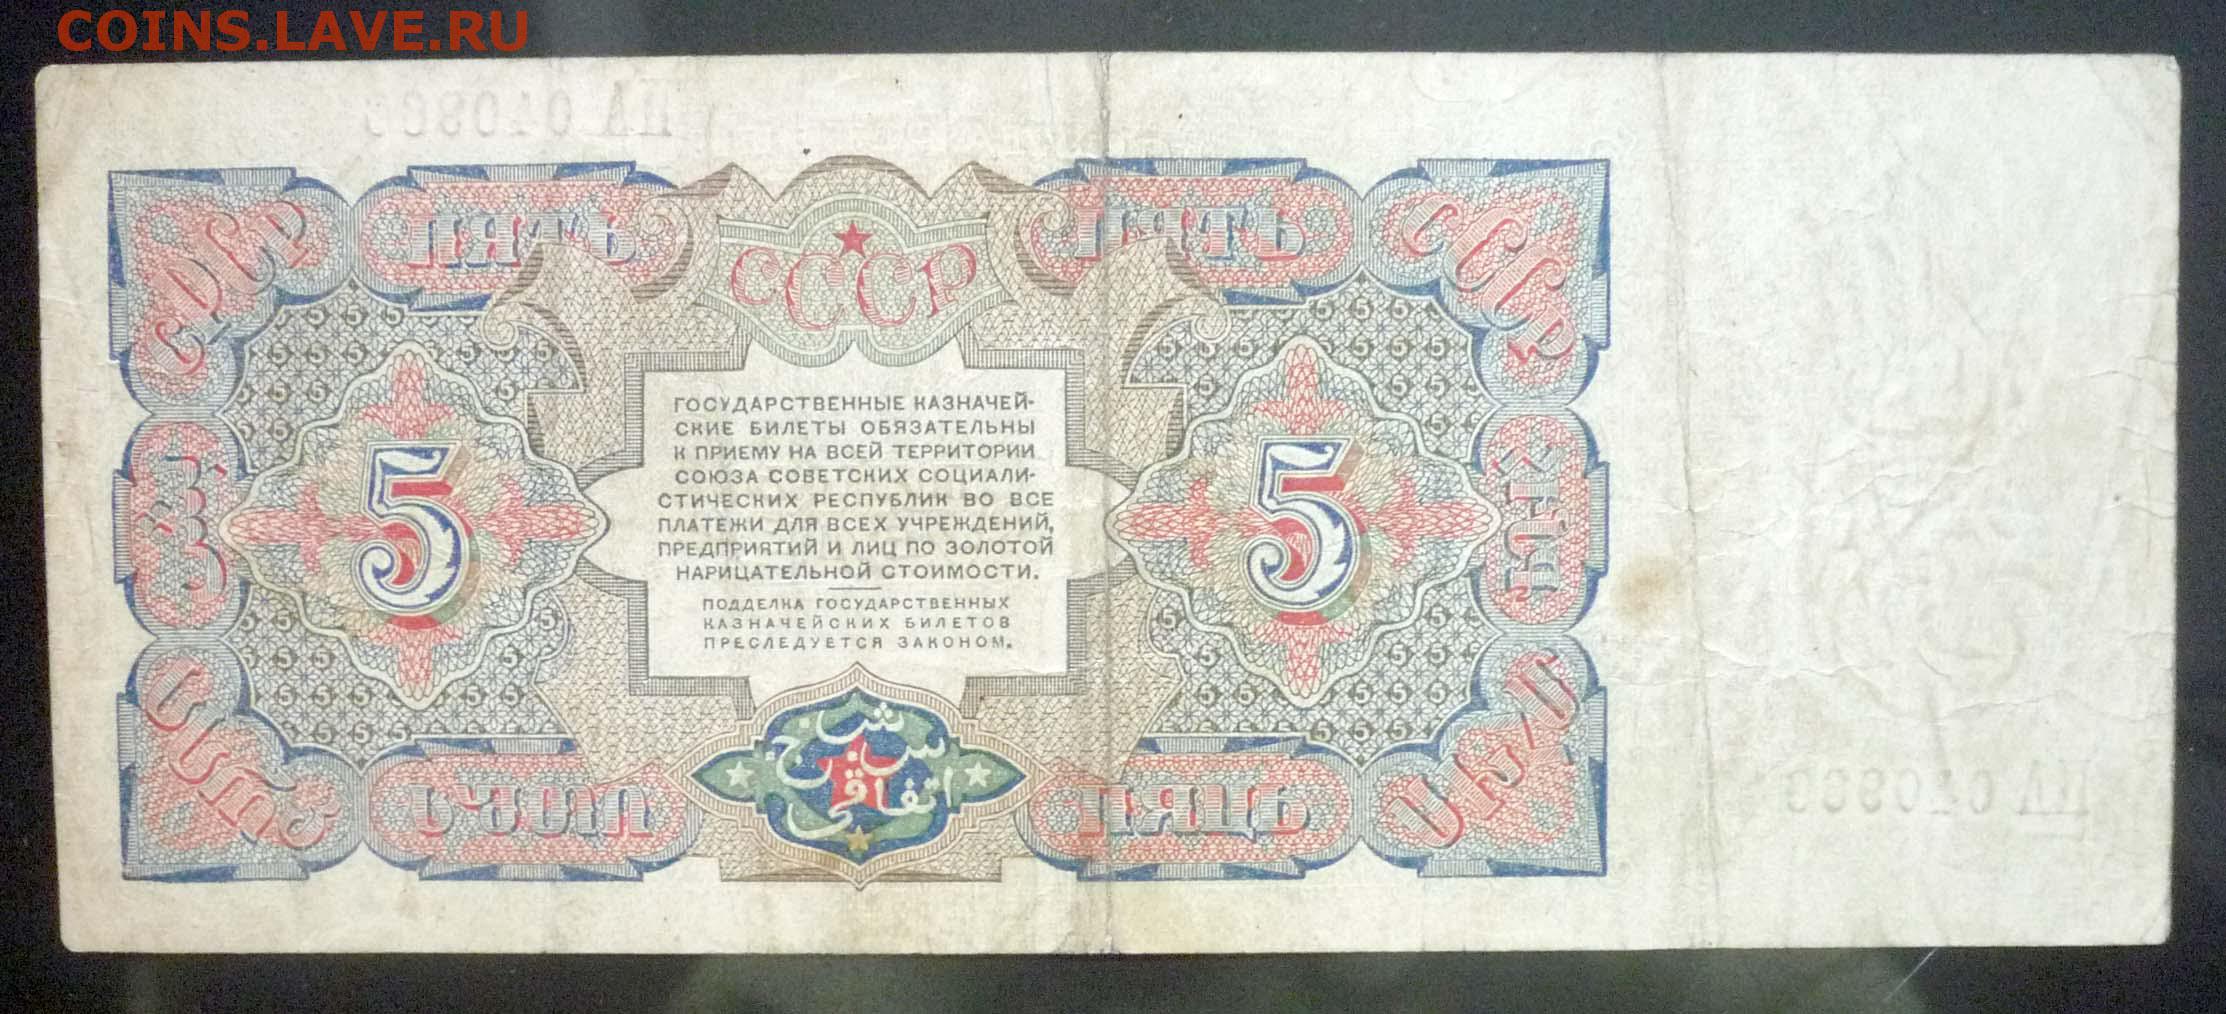 COINS.LAVE.RU
ПЯТЬ
ПЯТЬ
СССР
5
5
ГОСУДАРСТВЕННЫЕ КАЗНАЧЕЙ-
СКИЕ БИЛЕТЫ ОБЯЗАТЕЛЬНЫ
К ПРИЕМУ НА ВСЕЙ ТЕРРИТОРИИ
СОЮЗА СОВЕТСКИХ СОЦИАЛИ-
СТИЧЕСКИХ РЕСПУБЛИК ВО ВСЕ
ПЛАТЕЖИ ДЛЯ ВСЕХ УЧРЕЖДЕНИЙ,
ПРЕДПРИЯТИЙ И ЛИЦ ПО ЗОЛОТОЙ
НАРИЦАТЕЛЬНОЙ СТОИМОСТИ.
ПОДДЕЛКА ГОСУДАРСТВЕННЫХ
КАЗНАЧЕЙСКИХ БИЛЕТОВ
ПРЕСЛЕДУЕТСЯ ЗАКОНОМ.
ПЯЦЬ